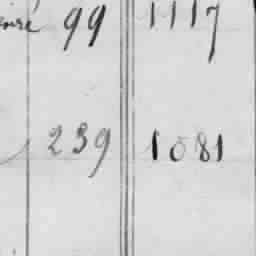 99 1117
239 1081